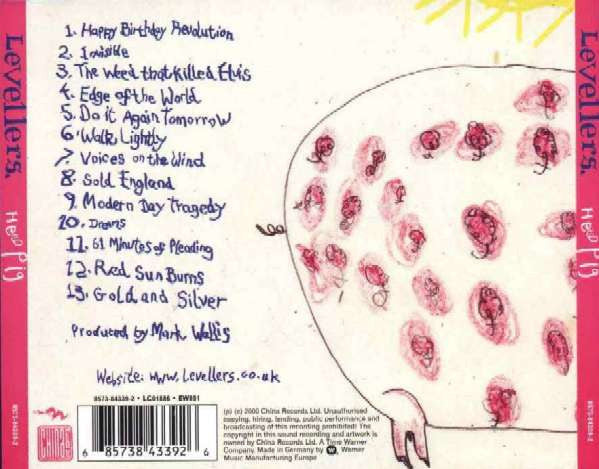 Levellers.
Hello Pig
1. Happy Birthday Revolution
2. Invisible
3. The Weed that Killed Elvis
4. Edge of the World
5. Do it Again Tomorrow
6. Walk Lightly
7. Voices on the Wind
8. Sold England
9. Modern Day Tragedy
10. Dreams
11. 61 Minutes of Pleading
12. Red Sun Burns
13. Gold and Silver
Produced by Mark Wallis
Website: www.Levellers.co.uk
8573-84339-2 • LC01886 • EW891
6 85738 43392 6
(p) (c) 2000 China Records Ltd. Unauthorised
copying, hiring, lending, public performance and
broadcasting of this recording prohibited! The
copyright in this sound recording and artwork is
owned by China Records Ltd. A Time Warner
Company. Made in Germany by Warner
Music Manufacturing Europe
CHINA
8573-84339-2
Levellers.
Hello Pig
8573-84339-2